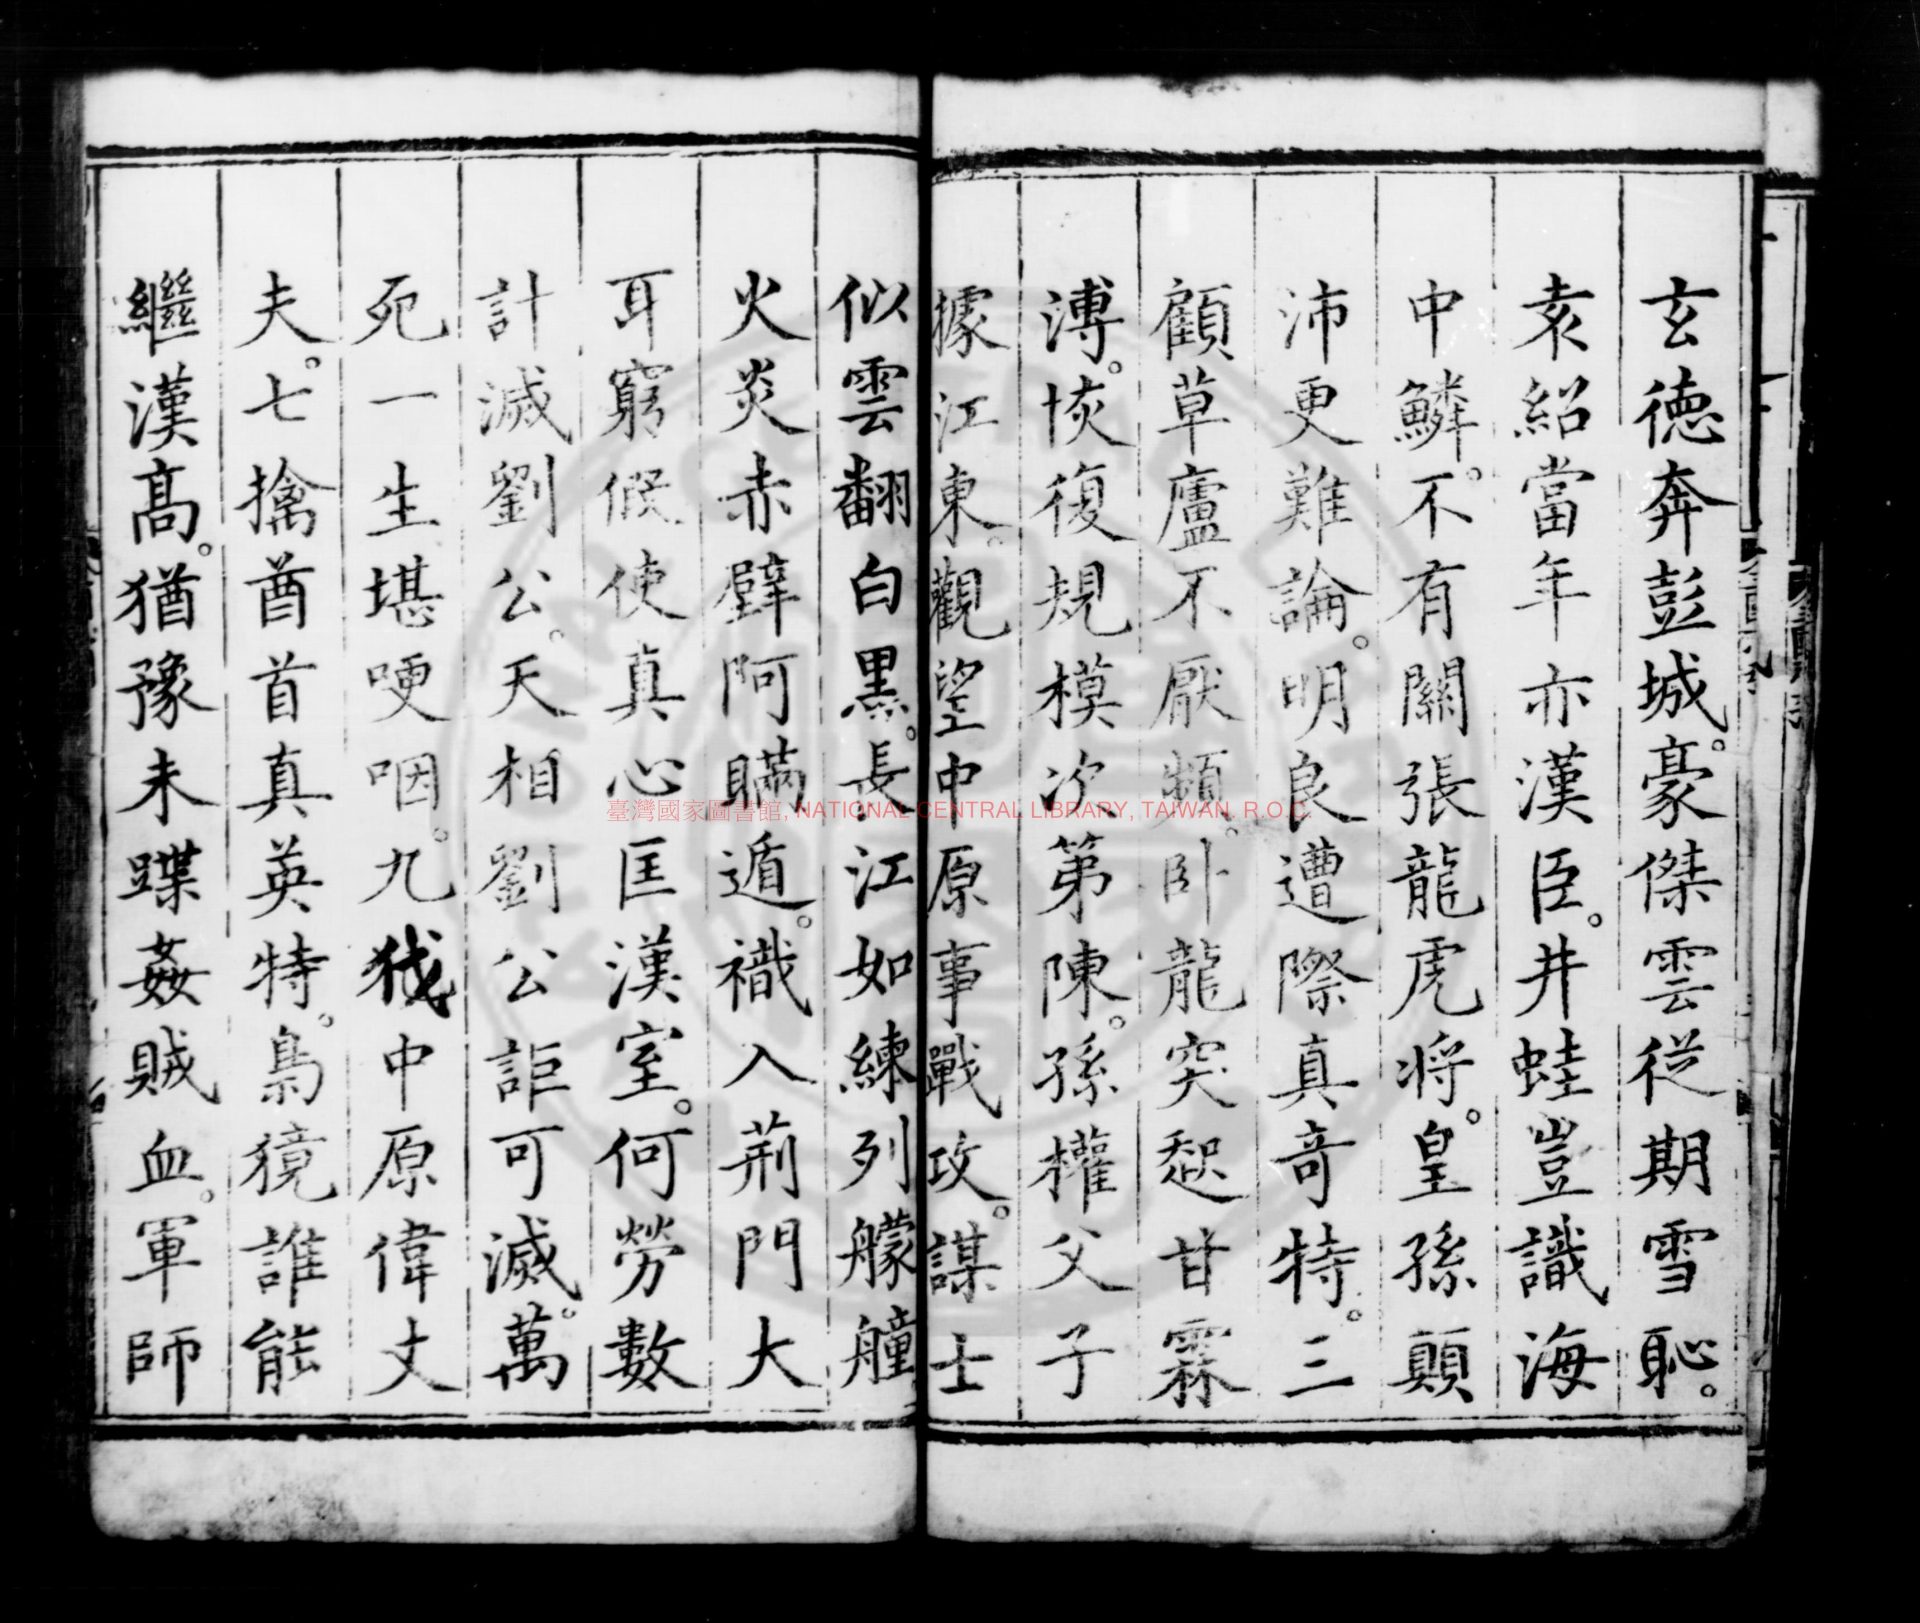 玄德奔彭城。豪傑雲從期雪恥。
袁紹當年亦漢臣。井蛙豈識海
中鱗。不有關張龍虎將。皇孫顛
沛更難論。明良遭際真奇特。三
顧草廬不厭頻。卧龍突起甘霖
溥。恢復規模次第陳。孫權父子
據江東。觀望中原事戰攻。謀士
似雲翻白黑。長江如練列艨艟
火炎赤壁阿瞞遁。襶入荊門大
耳窮假使真心匡漢室。何勞數
計滅劉公。天相劉公詎可滅。萬
死一生堪哽咽。九 中原偉丈
夫。七擒酋首真英特。梟獍誰能
繼漢高。猶豫未蹀姦賊血。軍師
臺灣國家圖書館, NATIONAL CENTRAL LIBRARY, TAIWAN, R.O.C.